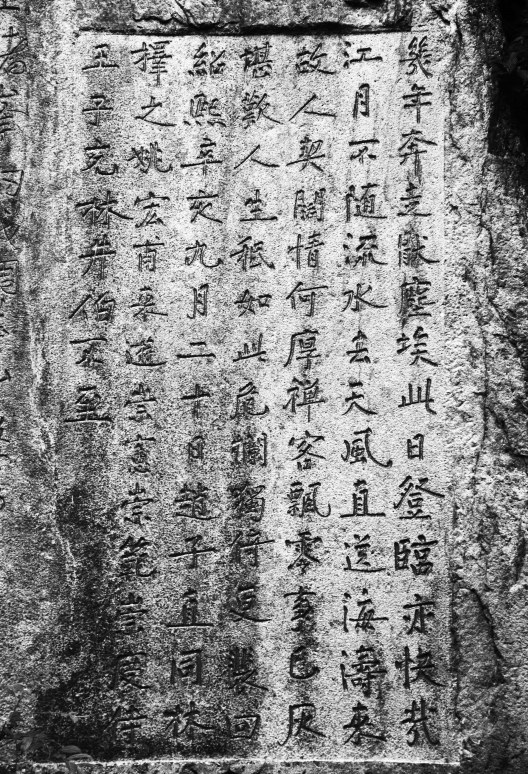 幾年奔走厭塵埃此日登臨亦快哉
江月不随流水去天風直送海濤来
故人契闊情何厚禅客飄零事已灰
堪歎人生秖如此危欄獨倚更裴回
紹熙辛亥九月二十日趙子直同林
擇之姚宏甫来遊崇憲崇範崇度侍
王子充林井伯不至